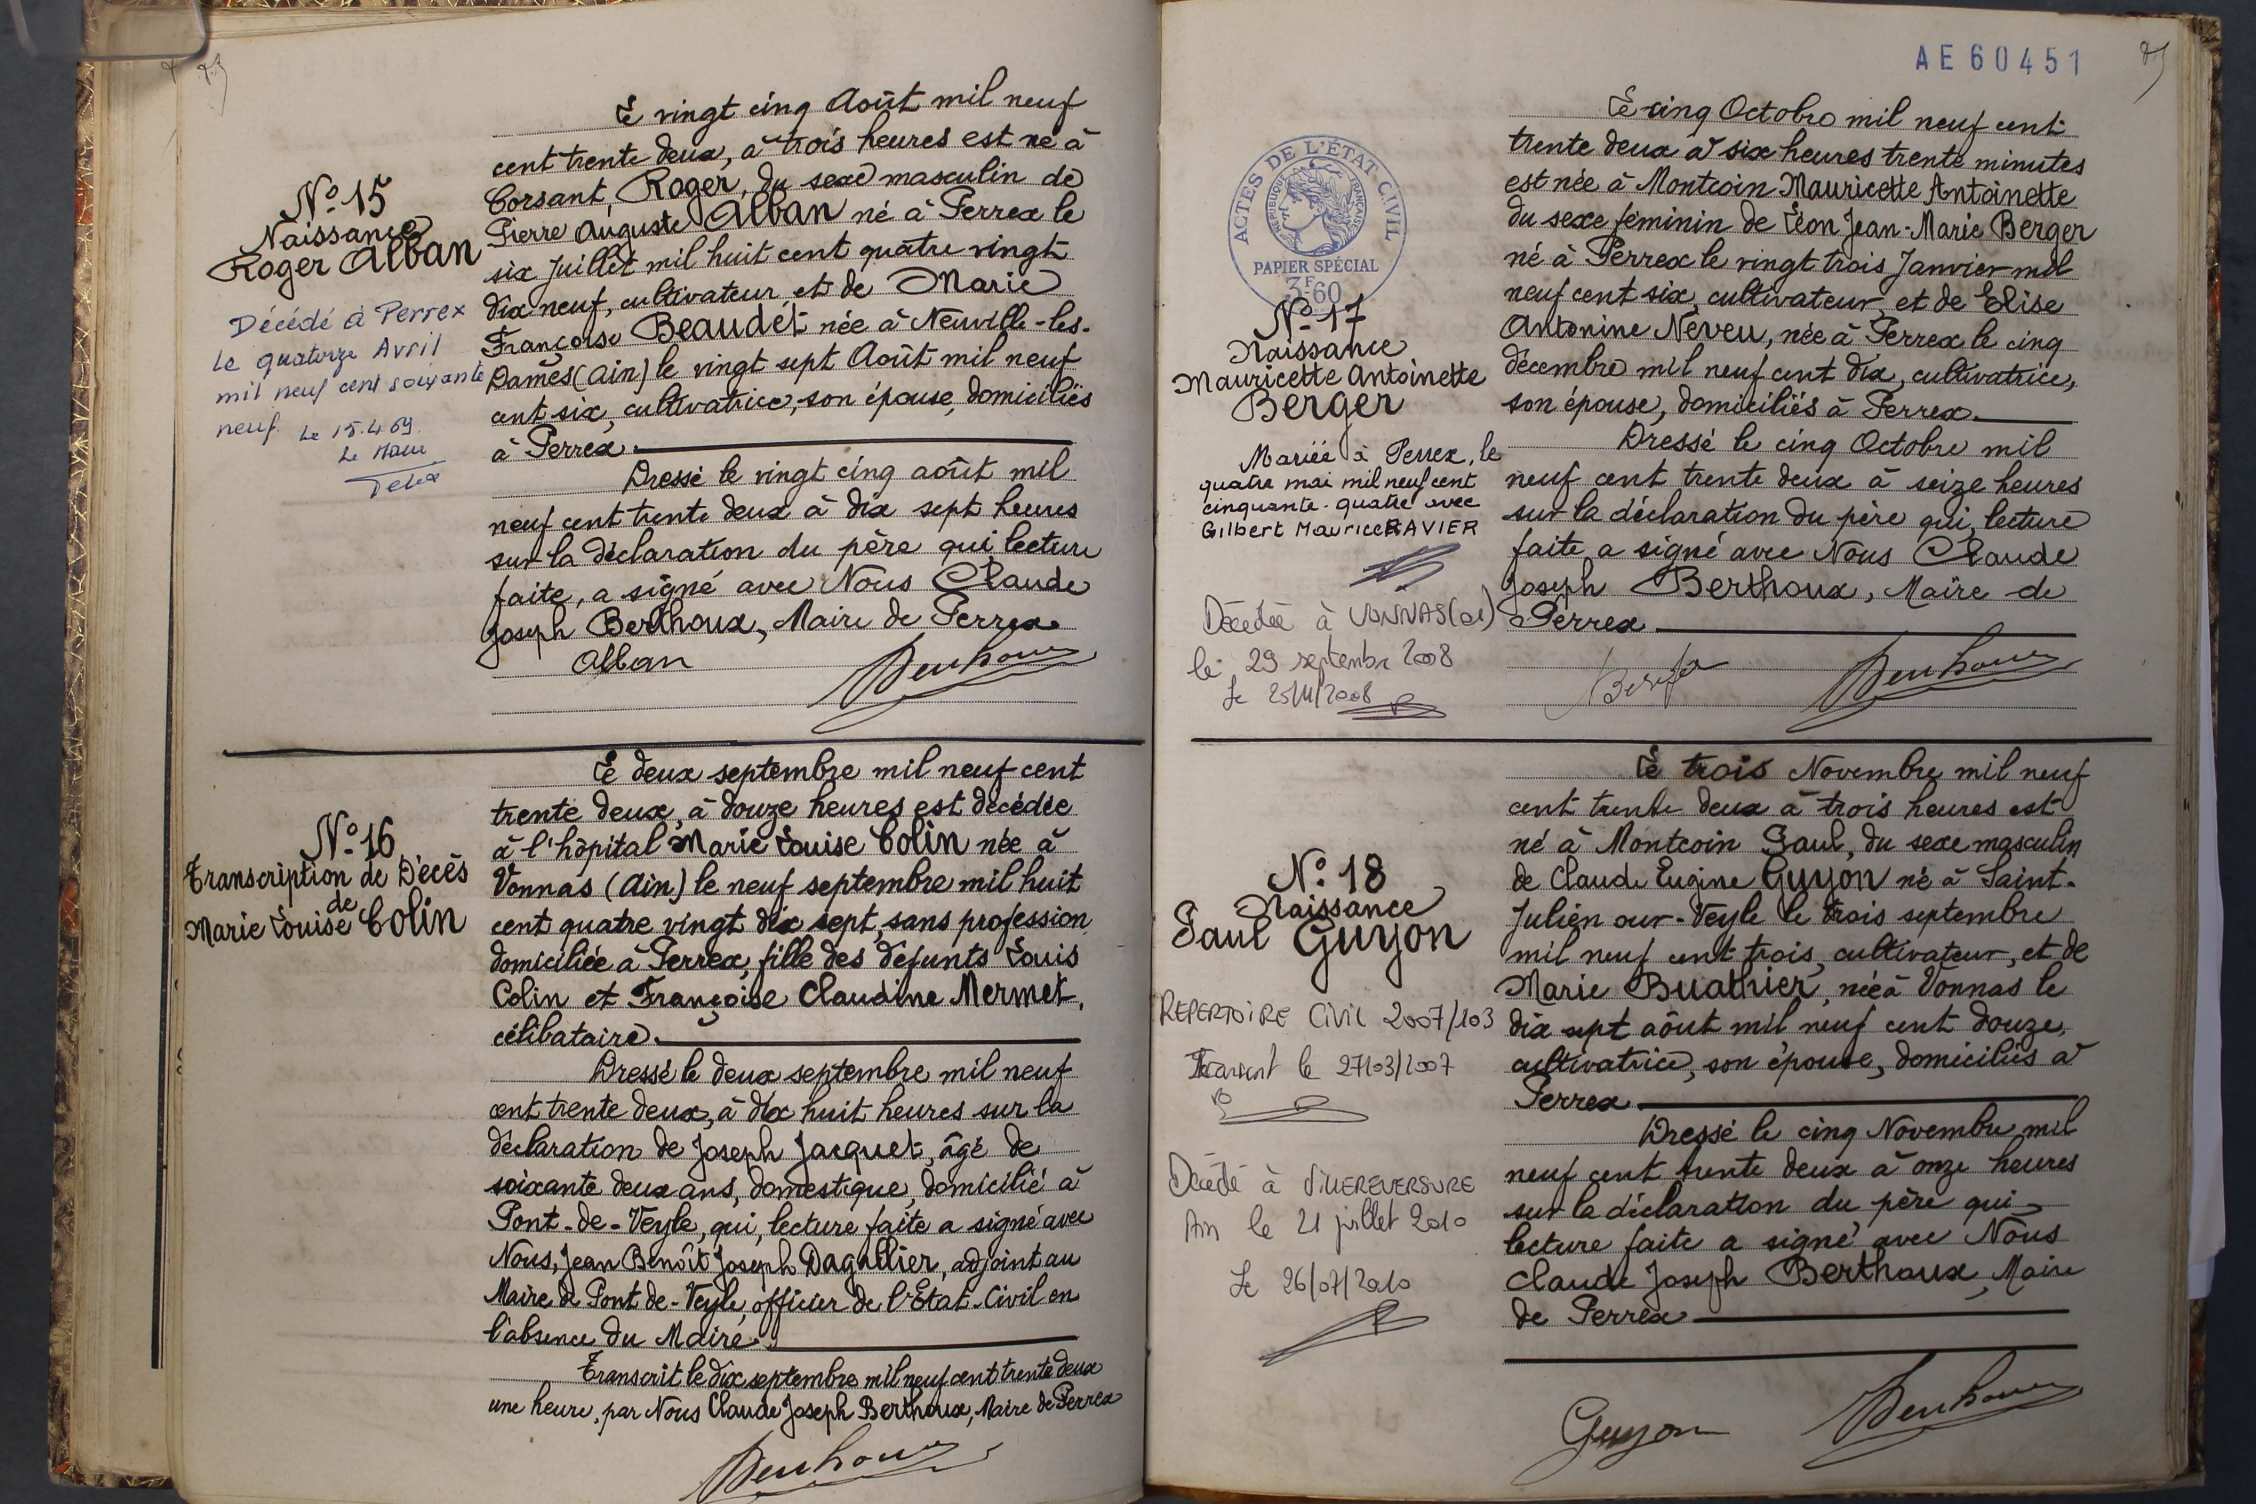 N° 15
Naissance
Roger Alban
Décédé à Perrex
le quatorze Avril
mil neuf cent soixante
neuf. Le 15.4.69.
Le Maire
Le vingt cinq Août mil neuf
cent trente deux, à trois heures est né à
Corsant, Roger, du sexe masculin de
Pierre Auguste Alban né à Perrex le
six Juillet mil huit cent quatre vingt
dix neuf, cultivateur, et de Marie
Françoise Beaudet née à Neuville-les-
Dames (Ain) le vingt sept Août mil neuf
cent six, cultivatrice, son épouse, domiciliés
à Perrex.
Dressé le vingt cinq août mil
neuf cent trente deux à dix sept heures
sur la déclaration du père qui lecture
faite, a signé avec Nous Claude
Joseph Berthoux, Maire de Perrex
Alban
N° 16
Transcription de Décès
de
Marie Louise Colin
Le deux septembre mil neuf cent
trente deux, à douze heures est décédée
à l'hôpital Marie Louise Colin née à
Vonnas (Ain) le neuf septembre mil huit
cent quatre vingt dix sept, sans profession
domiciliée à Perrex, fille des défunts Louis
Colin et Françoise Claudine Mermet,
célibataire.
Dressé le deux septembre mil neuf
cent trente deux, à dix huit heures sur la
déclaration de Joseph Jacquet, âgé de
soixante deux ans, domestique, domicilié à
Pont-de-Veyle, qui, lecture faite a signé avec
Nous, Jean Benoît Joseph Dagallier, adjoint au
Maire de Pont-de-Veyle, officier de l'Etat-Civil en
l'absence du Maire.
Transcrit le dix septembre mil neuf cent trente deux
une heure, par Nous Claude Joseph Berthoux, Maire de Perrex
AE60451
ACTES DE L'ÉTAT CIVIL
RÉPUBLIQUE FRANÇAISE
PAPIER SPÉCIAL
3F60
N° 17
Naissance
Mauricette Antoinette
Berger
Mariée à Perrex, le
quatre mai mil neuf cent
cinquante-quatre avec
Gilbert Maurice RAVIER
Décédée à VONNAS (01)
le 29 septembre 2008
Le cinq Octobre mil neuf cent
trente deux à six heures trente minutes
est née à Montcoin Mauricette Antoinette
du sexe féminin de Léon Jean-Marie Berger
né à Perrex le vingt trois Janvier mil
neuf cent six, cultivateur, et de Elise
Antonine Neveu, née à Perrex le cinq
décembre mil neuf cent dix, cultivatrice,
son épouse, domiciliés à Perrex.
Dressé le cinq Octobre mil
neuf cent trente deux à seize heures
sur la déclaration du père qui, lecture
faite, a signé avec Nous Claude
Joseph Berthoux, Maire de
Perrex
Berger
N° 18
Naissance
Paul Guyon
REPERTOIRE Civil 2007/103
Transcrit le 27/03/2007
Décédé à VILLEREVERSURE
Ain le 21 juillet 2010
Le 26/07/2010
Le trois Novembre mil neuf
cent trente deux à trois heures est
né à Montcoin Paul, du sexe masculin
de Claude Eugène Guyon né à Saint-
Julien sur-Veyle le trois septembre
mil neuf cent trois, cultivateur, et de
Marie Buathier, née à Vonnas le
dix sept août mil neuf cent douze,
cultivatrice, son épouse, domiciliés à
Perrex
Dressé le cinq Novembre mil
neuf cent trente deux à onze heures
sur la déclaration du père qui
lecture faite a signé avec Nous
Claude Joseph Berthoux, Maire
de Perrex
Guyon